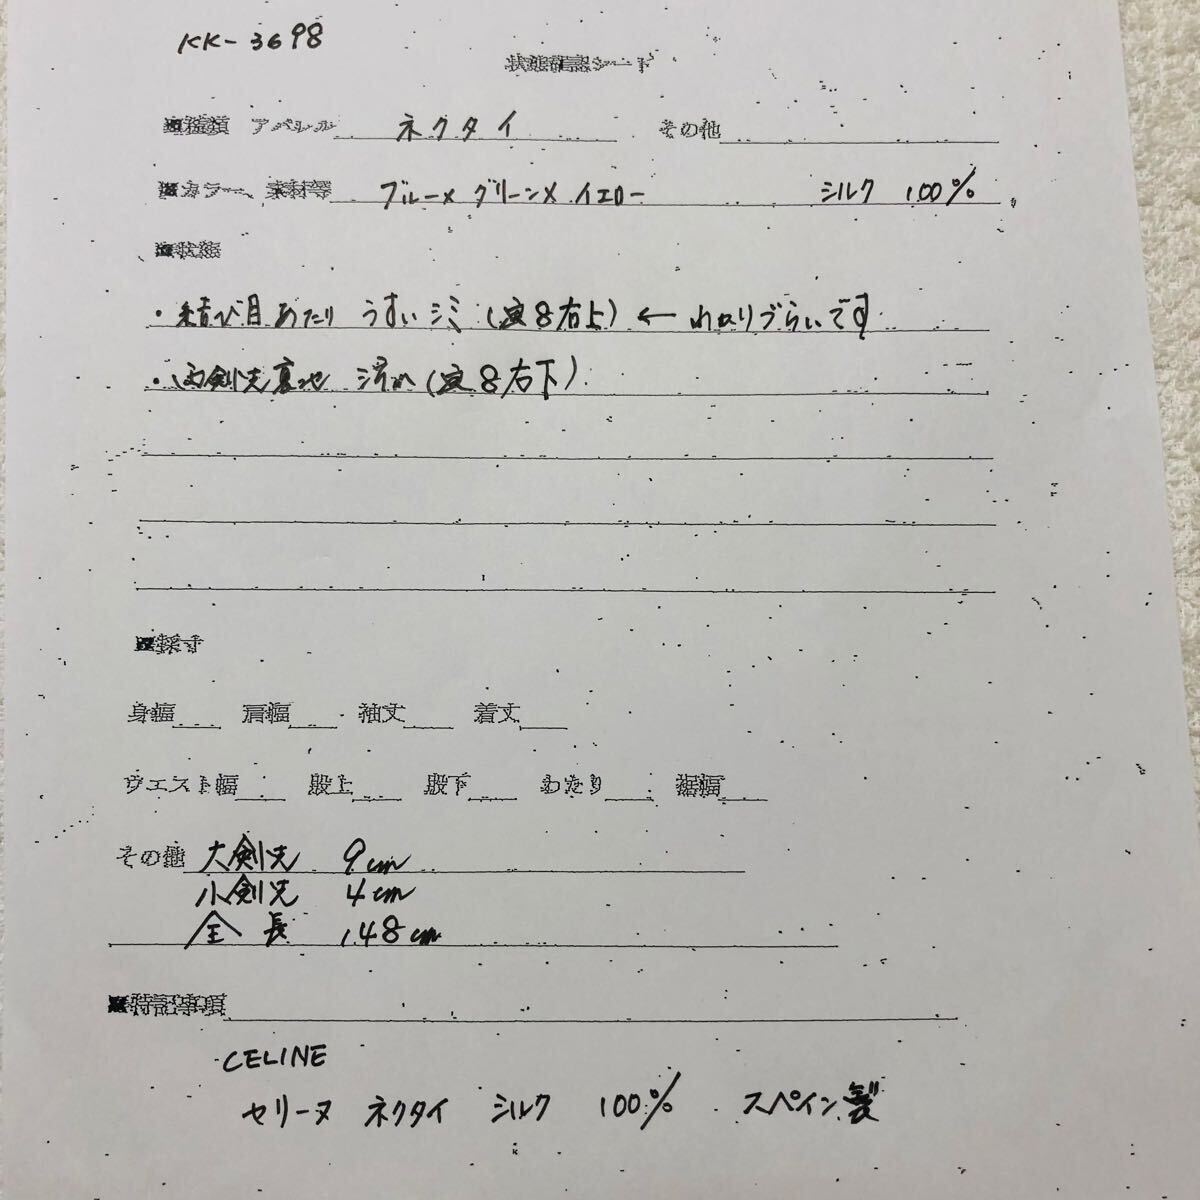 KK-3698
状態確認シート
■種類 アパレル ネクタイ その他
■カラー、素材等 ブルー×グリーン×イエロー シルク 100%
■状態
・結び目あたり うすいシミ(画8右上) ← わかりづらいです
・両剣先裏地 汚れ(画8右下)
■採寸
身幅 肩幅 袖丈 着丈
ウエスト幅 股上 股下 わたり 裾幅
その他 大剣先 9cm
小剣先 4cm
全長 148cm
■特記事項
CELINE
セリーヌ ネクタイ シルク 100% スペイン製